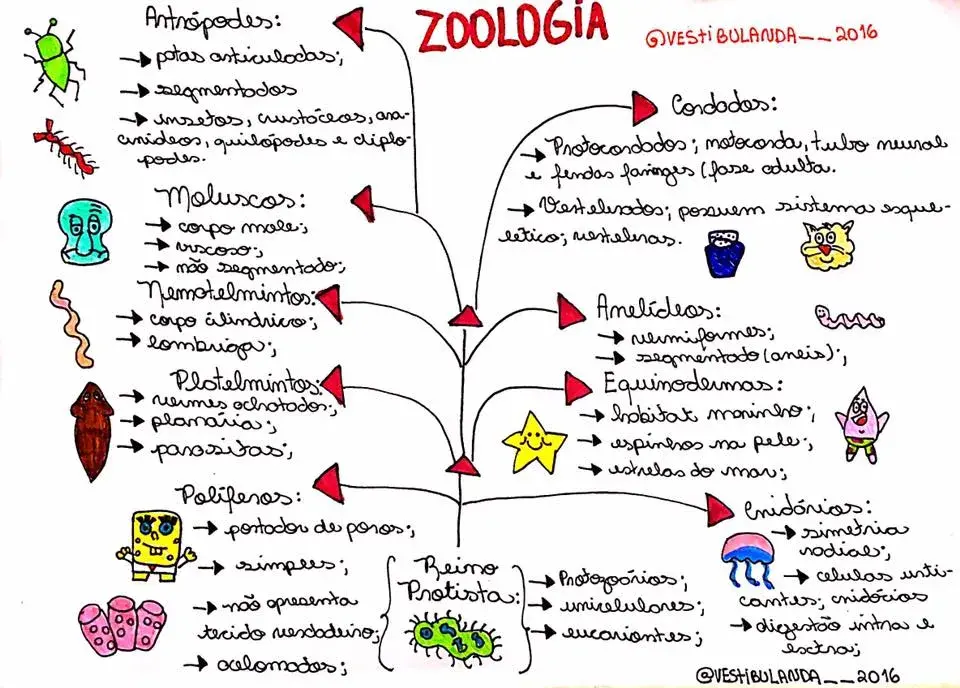 ZOOLOGIA
@VESTIBULANDA__2016
Artrópodes:
→ patas articuladas;
→ segmentados
→ insetos, crustáceos, ara-
cnídeos, quilópodes e diplo-
podes.
Moluscos:
→ corpo mole;
→ viscoso;
→ não segmentado;
Nematelmintos:
→ corpo cilíndrico;
→ lombriga;
Platelmintos:
→ vermes achatados;
→ planária;
→ parasitas;
Poríferos:
→ portador de poros;
→ simples;
→ não apresenta
tecido verdadeiro;
→ acelomados;
Reino
Protista:
→ Protozoários;
→ unicelulares;
→ eucariontes;
Cordados:
→ Protocordados; notocorda, tubo neural
e fendas faringes (fase adulta.
→ Vertebrados; possuem sistema esque-
lético; vertebras.
Anelídeos:
→ vermiformes;
→ segmentado (aneis);
Equinodermas:
→ habitat marinho;
→ espinhos na pele;
→ estrelas do mar;
Cnidários:
→ simetria
radial;
→ celulas urti-
cantes; cnidócios
→ digestão intra e
extra;
@VESTIBULANDA__2016